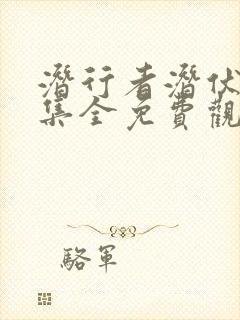 潛行者潛伏
集全免費觀
駱軍